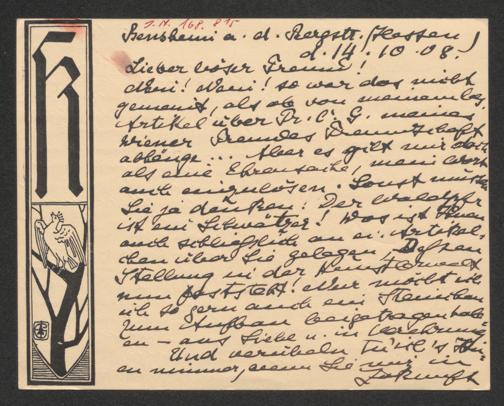 I.N. 168.815
Bensheim a. d. Bergstr. (Hessen)
d. 14.10.08.
Lieber böser Freund!
Nein! Nein! so war das nicht
gemeint, als ob von meinem
Artikel über Pr. C. G. meines
Wiener Freundes Freundschaft
abhänge... Aber es gilt mir doch
als eine Ehrensache, mein Wort
auch einzulösen. Sonst müssten
Sie ja denken: Der
ist ein Schwätzer! Was ist Ihnen
auch schließlich an ei. Artikel-
chen über Sie gelegen, Dessen
Stellung in der Künstlerwelt
nun feststeht! Nur möcht ich
ich so gern auch ein Steinchen
zum Aufbau beigetragen hab-
en - aus Liebe u. in Verehrung
Und verübeln tu ich's Ihn-
en nimmer, wenn Sie mir in
Zukunft